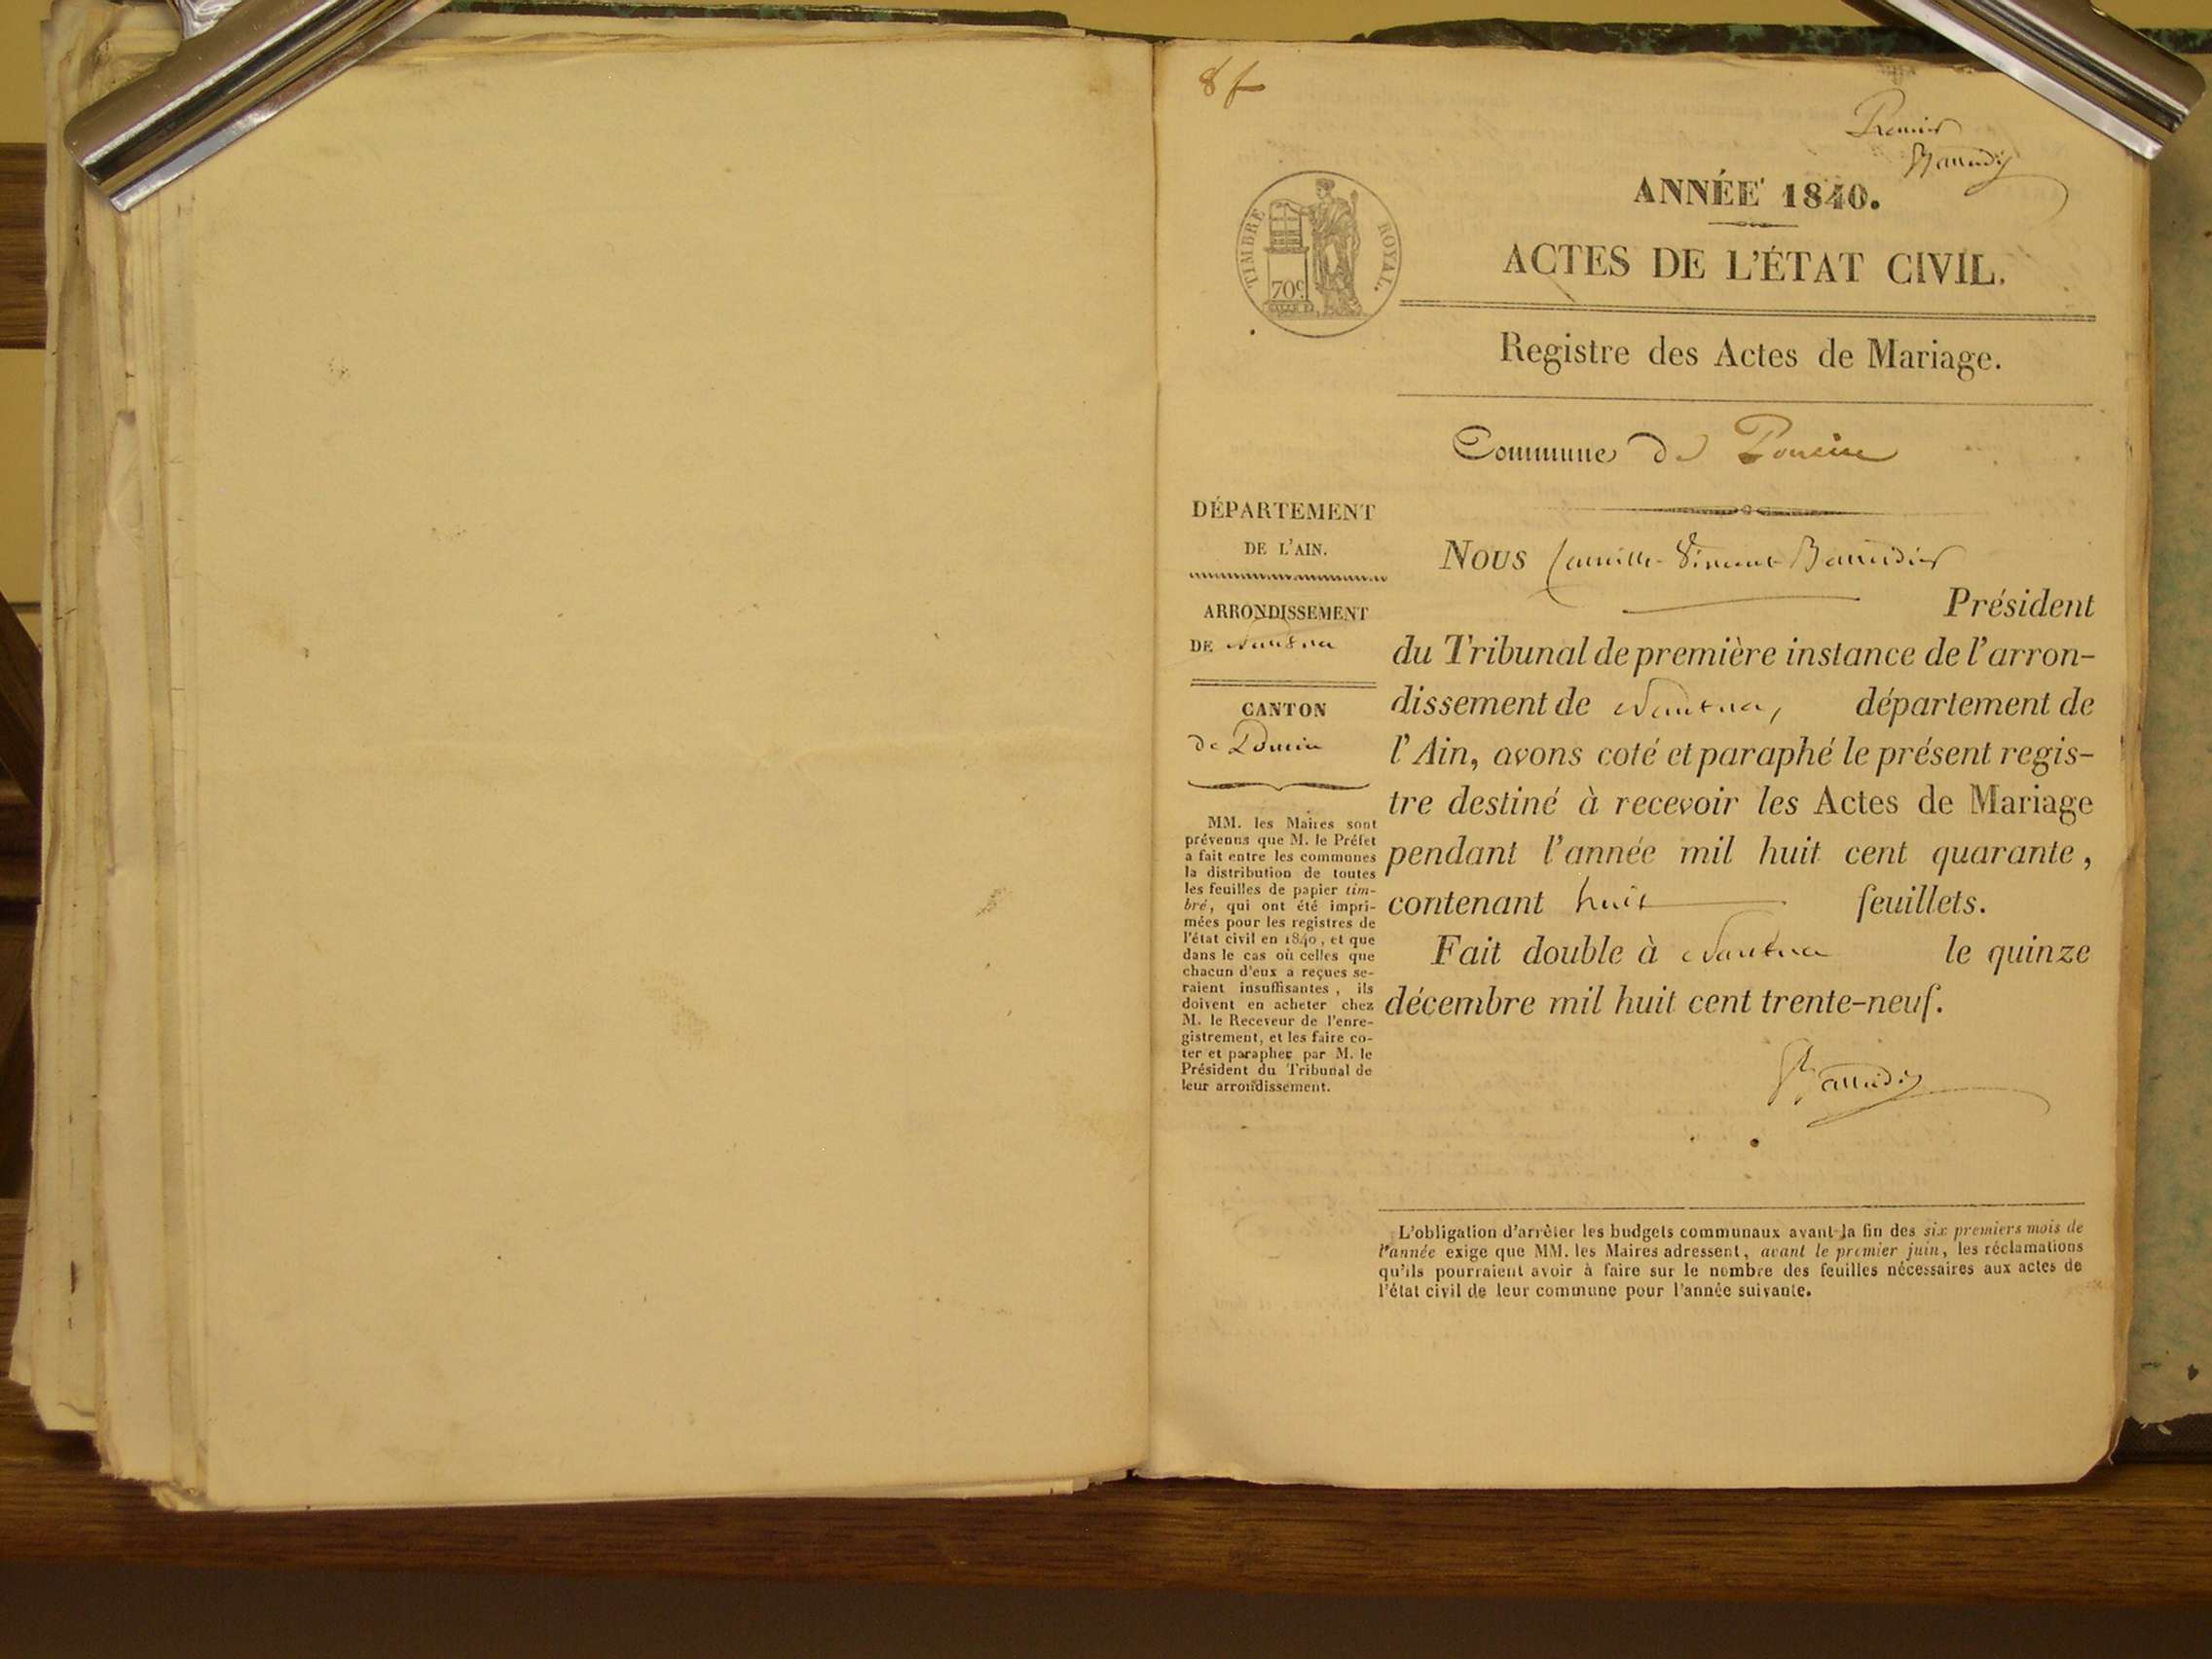 8 f
Premier
ANNÉE 1840.
TIMBRE ROYAL.
70c
ACTES DE L'ÉTAT CIVIL.
Registre des Actes de Mariage.
Commune de Poncin
DÉPARTEMENT
DE L'AIN.
ARRONDISSEMENT
DE Nantua
CANTON
de Poncin
MM. les Maires sont
prévenus que M. le Préfet
a fait entre les communes
la distribution de toutes
les feuilles de papier tim-
bré, qui ont été impri-
mées pour les registres de
l'état civil en 1840, et que
dans le cas où celles que
chacun d'eux a reçues se-
raient insuffisantes, ils
doivent en acheter chez
M. le Receveur de l'enre-
gistrement, et les faire co-
ter et parapher par M. le
Président du Tribunal de
leur arrondissement.
NOUS Camille Vincent
Président
du Tribunal de première instance de l'arron-
dissement de Nantua, département de
l'Ain, avons coté et paraphé le présent regis-
tre destiné à recevoir les Actes de Mariage
pendant l'année mil huit cent quarante,
contenant huit feuillets.
Fait double à Nantua le quinze
décembre mil huit cent trente-neuf.
L'obligation d'arrêter les budgets communaux avant la fin des six premiers mois de
l'année exige que MM. les Maires adressent, avant le premier juin, les réclamations
qu'ils pourraient avoir à faire sur le nombre des feuilles nécessaires aux actes de
l'état civil de leur commune pour l'année suivante.